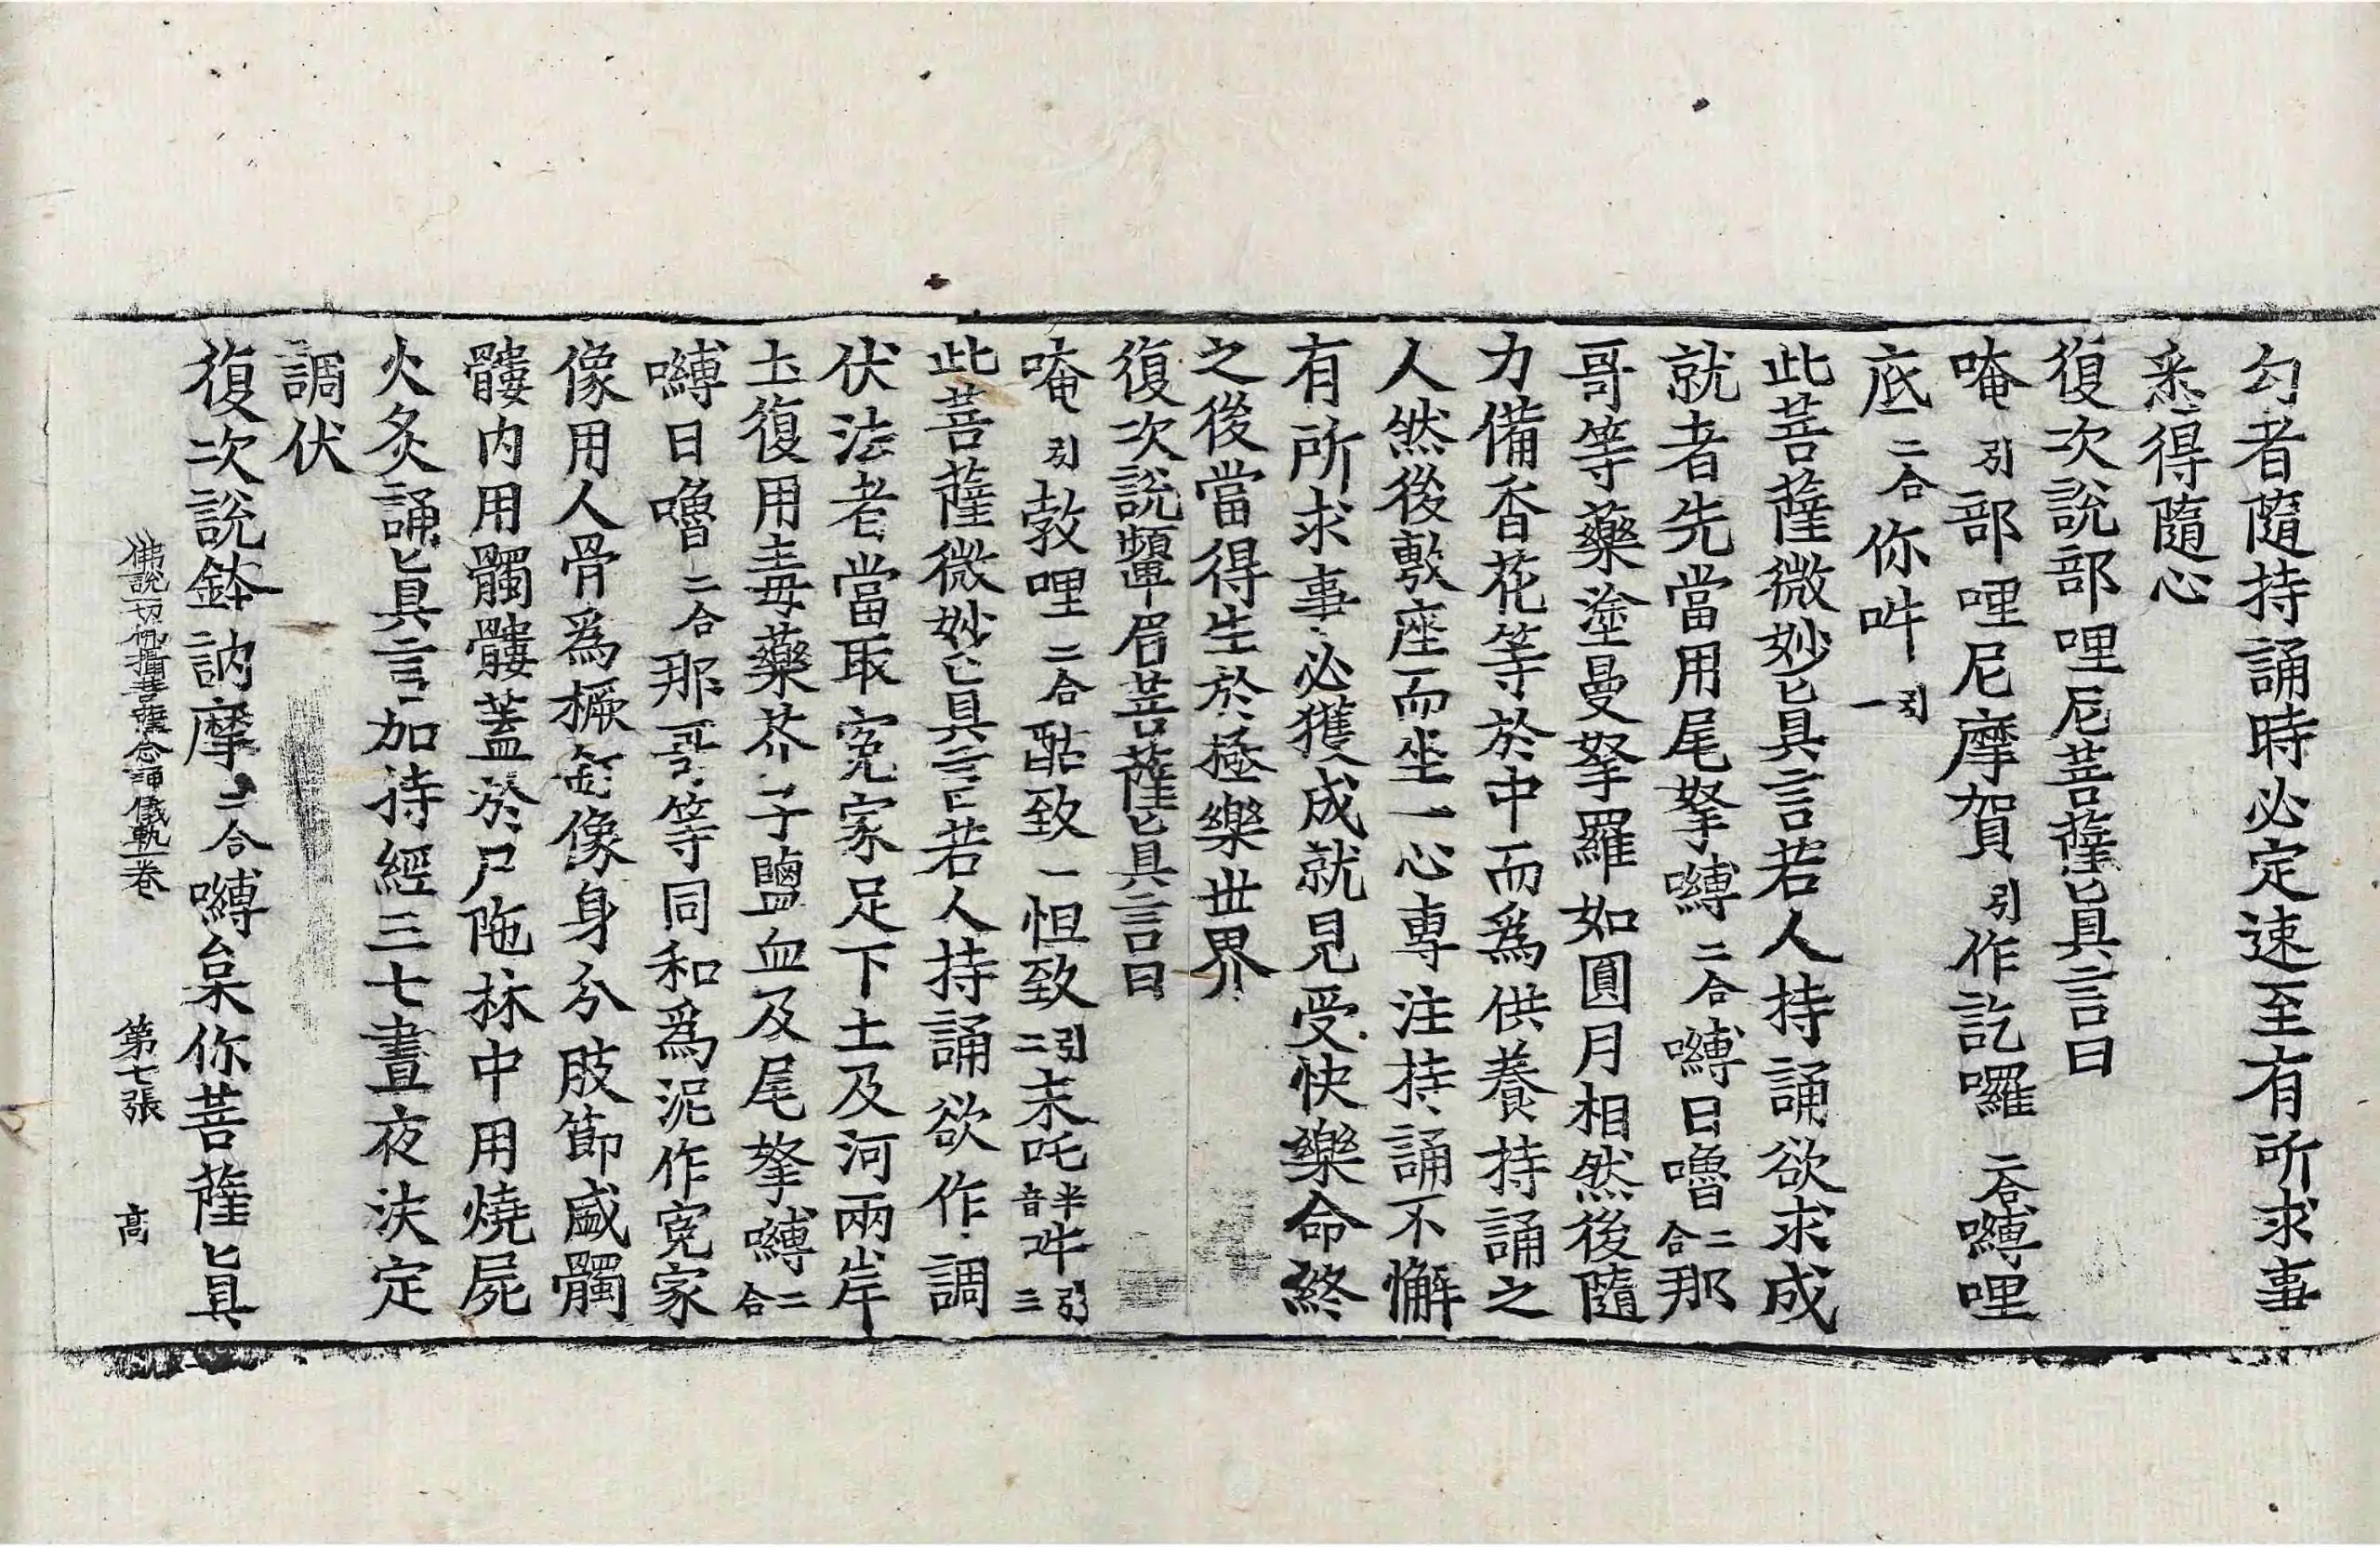 勾者隨持誦時必定速至有所求事
悉得隨心
復次說部哩尼菩薩真言曰
唵引部哩尼摩賀引作訖囉二合嚩哩
底二合你吽引一
此菩薩微妙真言若人持誦欲求成
就者先當用尾拏嚩二合嚩日嚕二合那
哥等藥塗曼拏羅如圓月相然後隨
力備香花等於中而為供養持誦之
人然後敷座而坐一心專注持誦不懈
有所求事必獲成就見受快樂命終
之後當得生於極樂世界
復次說顰眉菩薩真言曰
唵引敦哩二合酷致一怛致引二末吒半音吽引三
此菩薩微妙真言曰若人持誦欲作調
伏法者當取冤家足下土及河兩岸
土復用毒藥芥子鹽血及尾拏嚩二合
嚩日嚕二合那哥等同和為泥作冤家
像用人骨為橛釘像身分肢節盛髑
髏内用髑髏蓋於尸陁林中用燒屍
火炙誦真言加持經三七晝夜決定
調伏
復次說鉢訥摩二合嚩枲你菩薩真
佛說一切佛攝菩薩念誦儀軌一卷 第七張 高